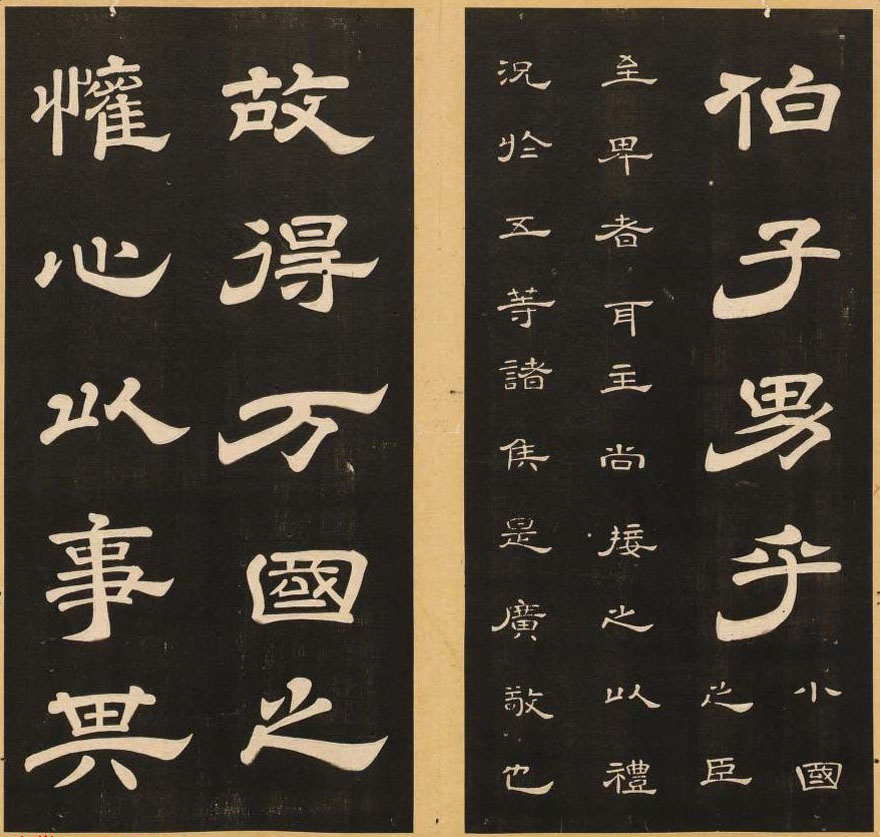 伯子男乎
小國
之臣
至卑者耳主尚接之以禮
況於五等諸侯是廣敬也
故得万國之
懽心以事其